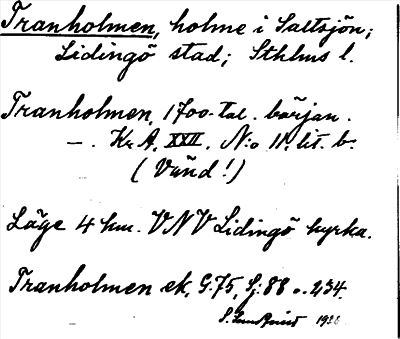 Tranholmen, holme i Saltsjön;
Lidingö stad; Sthlms l.
Tranholmen, 1700-tal. början.
—. Kr. A. XXII. N:o 11. lit. b.
(Vänd!)
Läge 4 km. VNV Lidingö kyrka.
Tranholmen ek. G. 75, Sj: 88 o. 234.
S. Lundquist